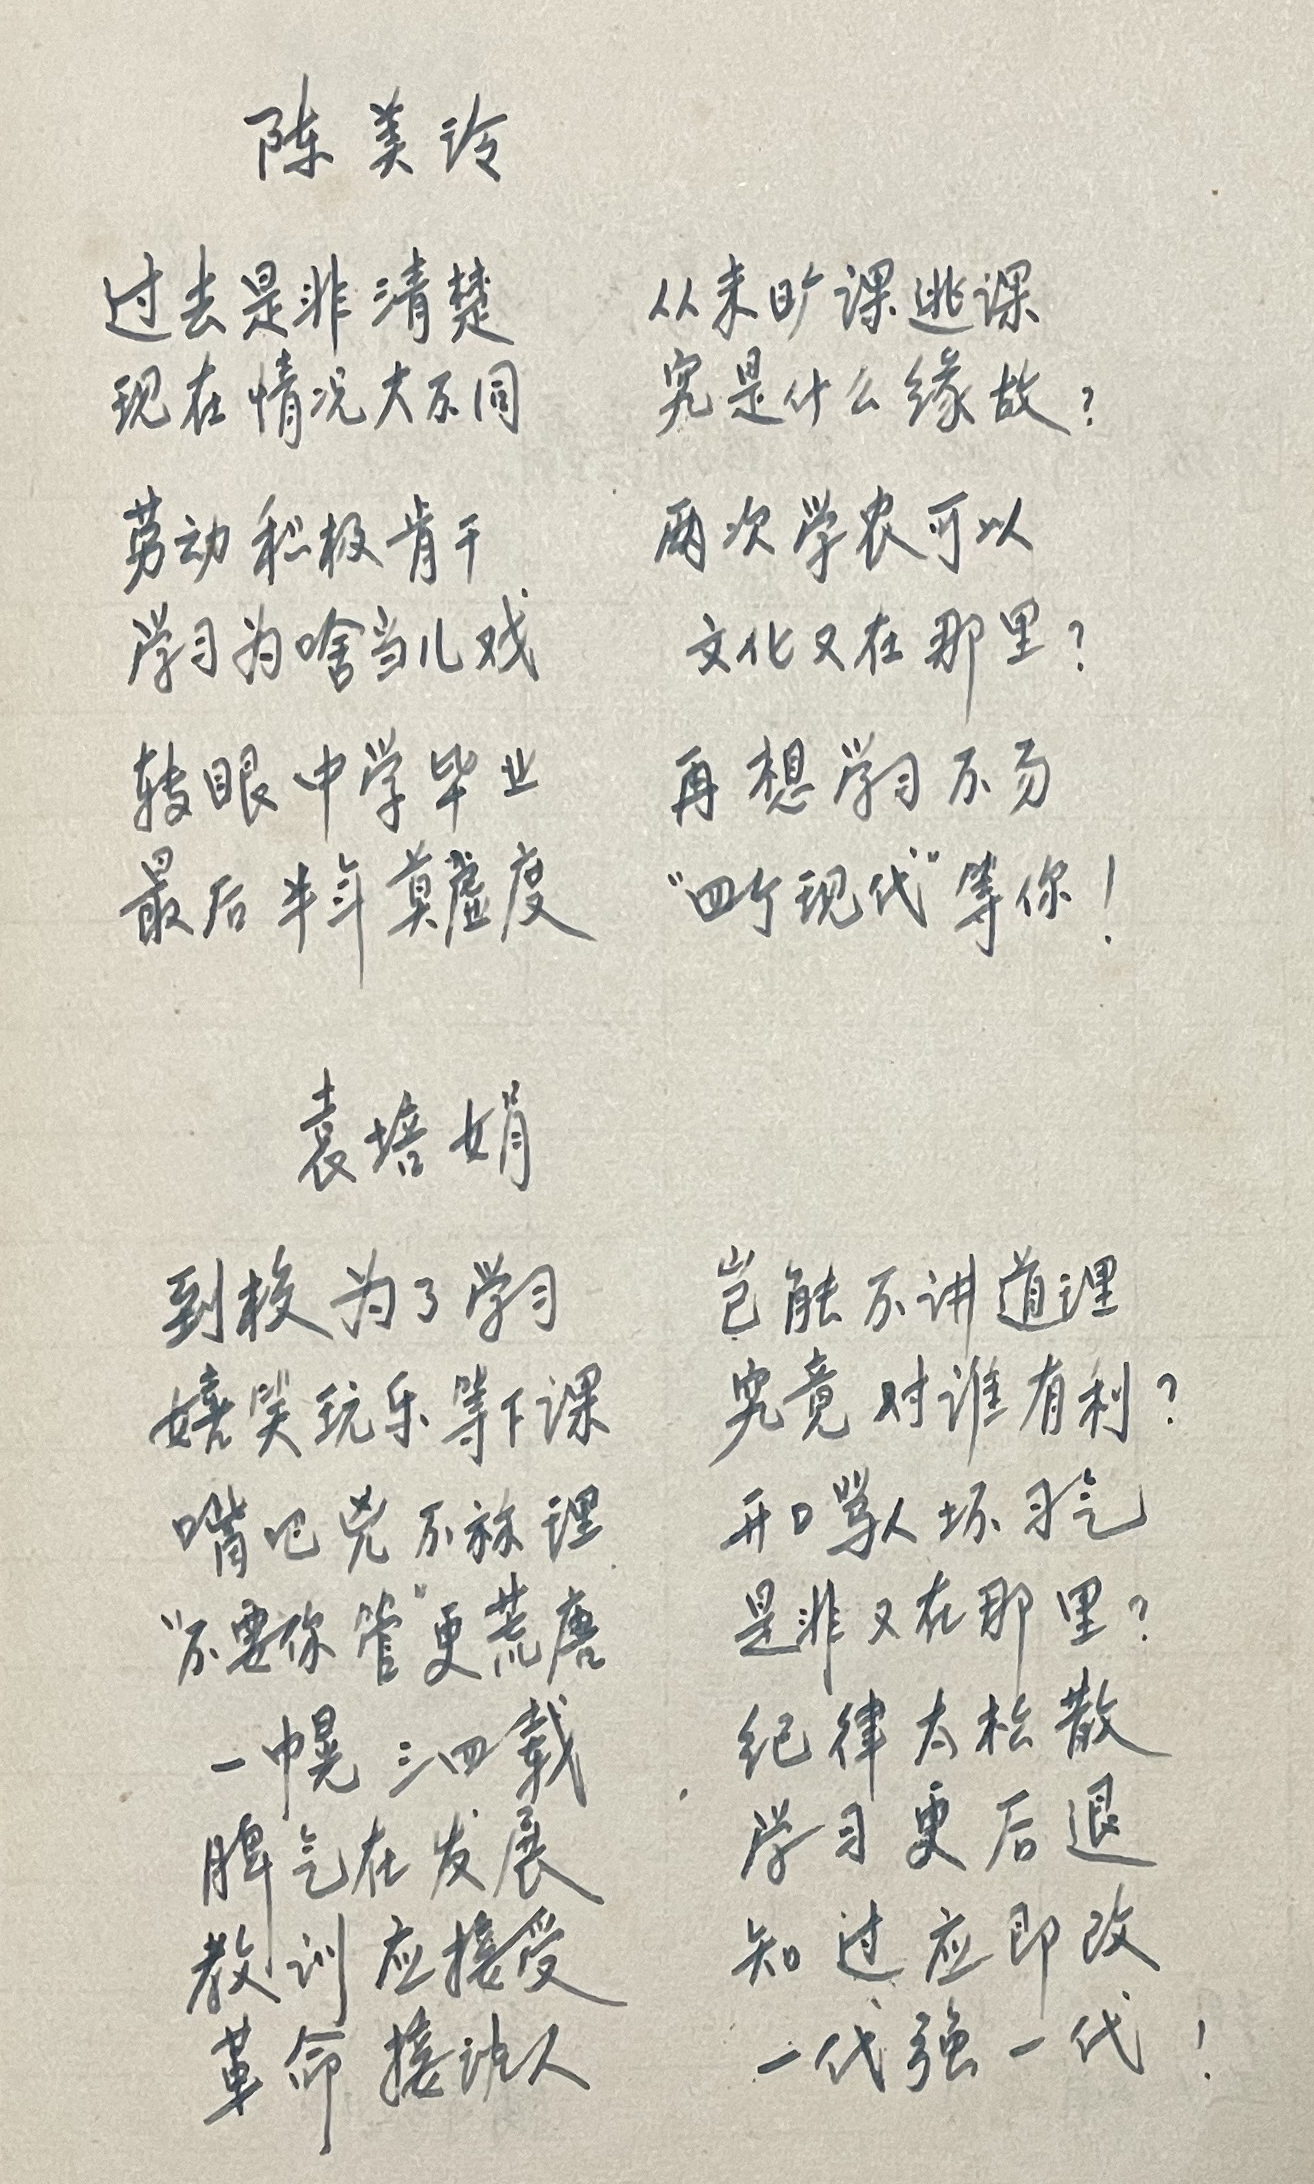 陈美玲
过去是非清楚 从来旷课逃课
现在情况大不同 究是什么缘故?
劳动积极肯干 两次学农可以
学习为啥当儿戏 文化又在那里?
转眼中学毕业 再想学习不易
最后半年莫虚度 “四个现代”等你!
袁培娟
到校为了学习 岂能不讲道理
嬉笑玩乐等下课 究竟对谁有利?
嘴吧凶不称理 开口骂人坏习气
“不要你管”更荒唐 是非又在那里?
一幌三四载 纪律太松散
脾气在发展 学习更后退
教训应接受 知过应即改
革命接班人 一代强一代!